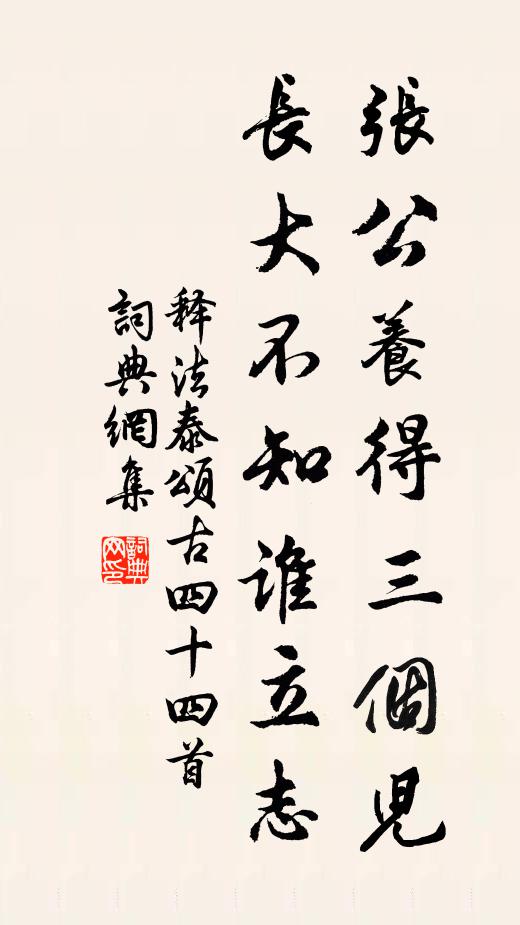 張公養得三個児
長大不知誰立志
释法泰頌古四十四首
詞典網集
詞典网印